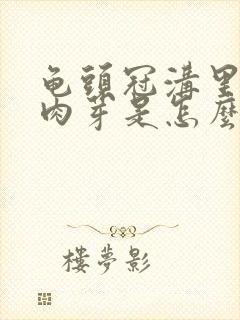 龟頭冠溝里
肉芽是怎麼
樓夢影